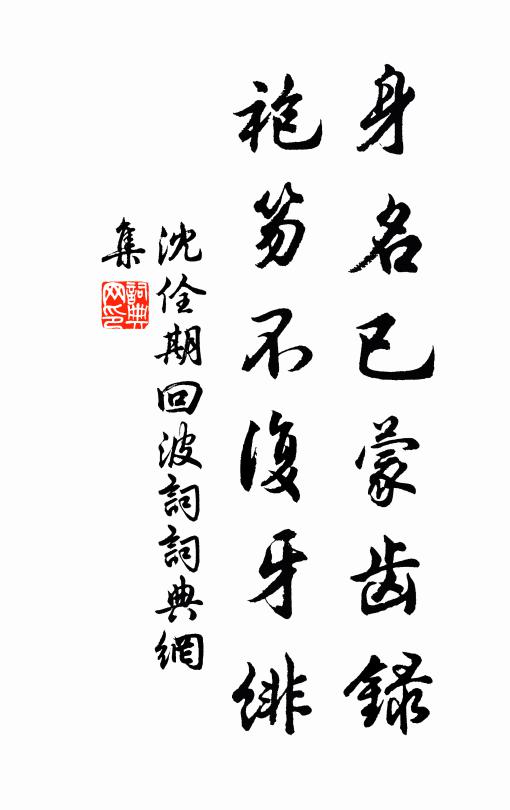 身名已蒙齿錄
袍笏不復牙緋
沈佺期回波詞詞典網
集
詞典
网印